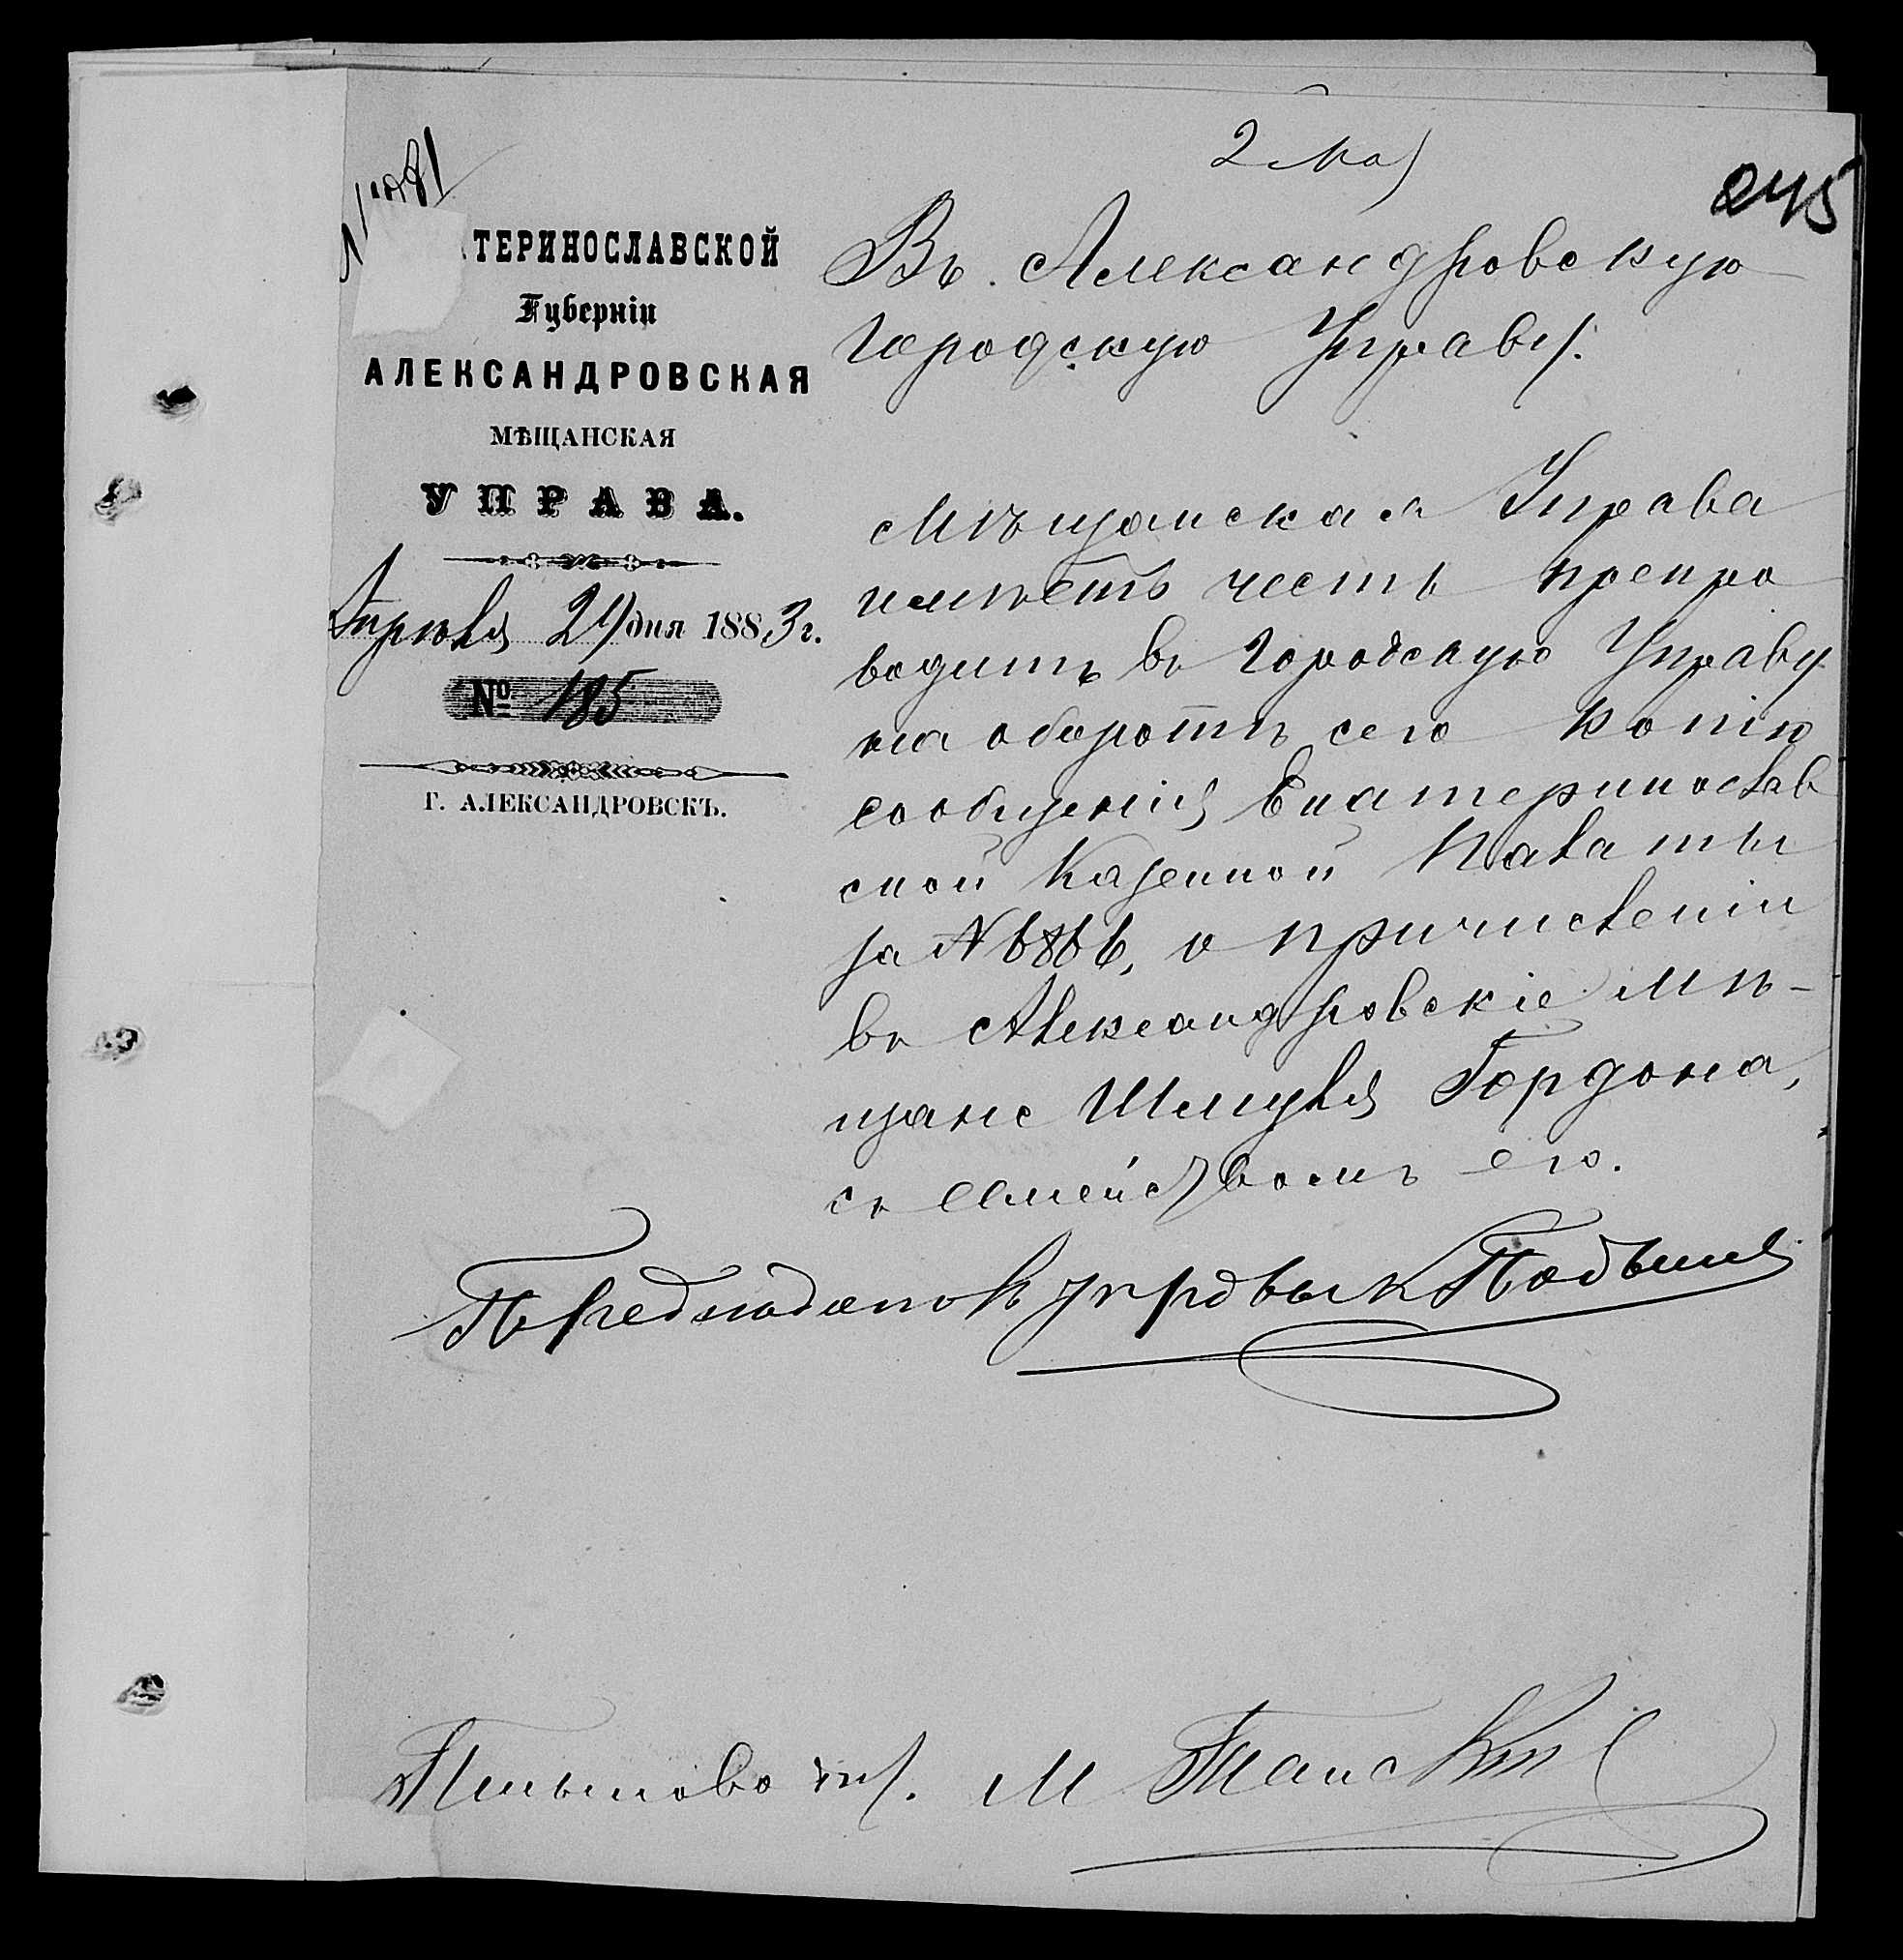 2 Мая
245
ТЕРИНОСЛАВСКОЙ
Губерніи
АЛЕКСАНДРОВСКАЯ
МѢЩАНСКАЯ
УПРАВА.
Апрѣля 29 дня 1883 г.
№ 185
Г. АЛЕКСАНДРОВСКЪ.
Въ Александровскую
Городскую Управу.
Мѣщанская Управа
имѣетъ честь препро
водить въ Городскую Управу
на оборотѣ сего копію
сообщенія Екатеринослав
ской Казенной Палаты
за №, о причисленіи
въ Александровскіе мѣ-
щане Шмуля Гордона,
съ семействомъ его.
М